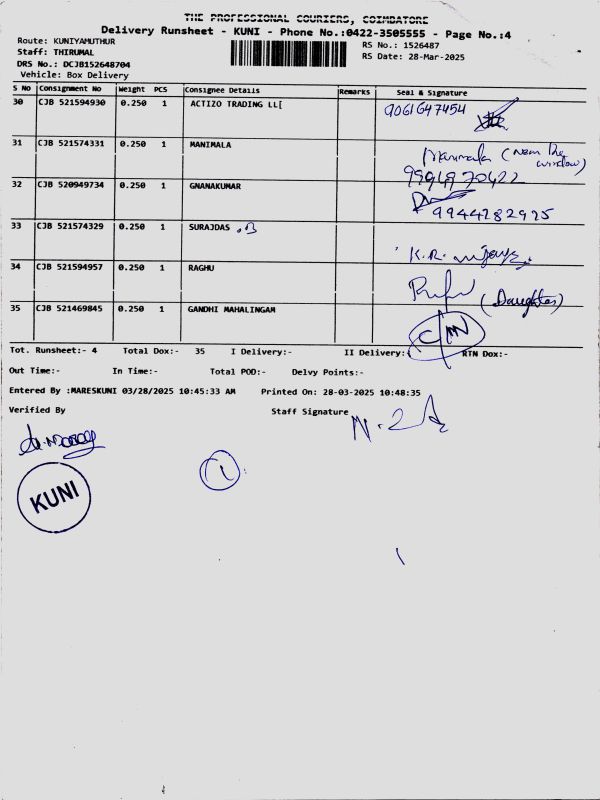 THE PROFESSIONAL COURIERS, COIMBATORE
Delivery Runsheet - KUNI - Phone No.:0422-3505555 - Page No.:4
Route: KUNIYAMUTHUR
RS No.: 1526487
Staff: THIRUMAL
RS Date: 28-Mar-2025
DRS No.: DCJB152648704
Vehicle: Box Delivery
S No Consignment No Weight PCS Consignee Details Remarks Seal & Signature
30 CJB 521594930 0.250 1 ACTIZO TRADING LL[ 9061647454
31 CJB 521574331 0.250 1 MANIMALA Manimala (Near the window)
9994970422
32 CJB 520949734 0.250 1 GNANAKUMAR
9944282925
33 CJB 521574329 0.250 1 SURAJDAS .B K.R.
34 CJB 521594957 0.250 1 RAGHU (Daughter)
35 CJB 521469845 0.250 1 GANDHI MAHALINGAM
Tot. Runsheet:- 4 Total Dox:- 35 I Delivery:- II Delivery:- RTN Dox:-
Out Time:- In Time:- Total POD:- Delvy Points:-
Entered By :MARESKUNI 03/28/2025 10:45:33 AM Printed On: 28-03-2025 10:48:35
Verified By Staff Signature
KUNI
1